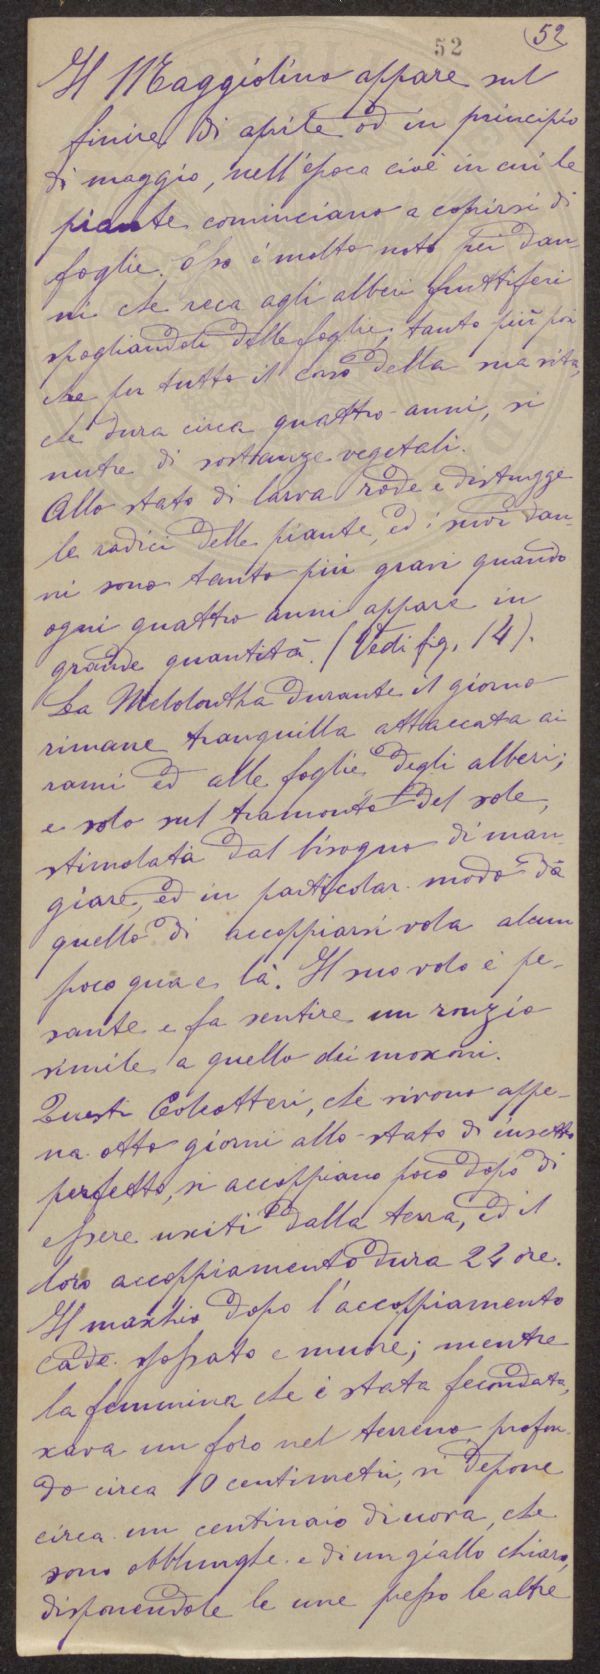 52
52
Il Maggiolino appare sul
finire di aprile od in principio
di maggio, nell'epoca cioè in cui le
piante cominciano a coprirsi di
foglie. Esso è molto noto pei dan-
ni che reca agli alberi fruttiferi
spogliandoli delle foglie, tanto più poi
che per tutto il corso della sua vita,
che dura circa quattro anni, si
nutre di sostanze vegetali.
Allo stato di larva rode e distrugge
le radici delle piante, ed i suoi dan-
ni sono tanto più gravi quando
ogni quattro anni appare in
grande quantità. (Vedi fig. 14).
La Melolontha durante il giorno
rimane tranquilla attaccata ai
rami ed alle foglie degli alberi;
e solo sul tramonto del sole,
stimolata dal bisogno di man-
giare, ed in particolar modo da
quello di accoppiarsi vola alcun
poco qua e là. Il suo volo è pe-
sante e fa sentire un ronzio
simile a quello dei mosconi.
Questi Coleotteri, che vivono appe-
na otto giorni allo stato di insetto
perfetto, si accoppiano poco dopo di
essere usciti dalla terra, ed il
loro accoppiamento dura 24 ore.
Il maschio dopo l'accoppiamento
cade spossato e muore; mentre
la femmina che è stata fecondata,
scava un foro nel terreno profon-
do circa 10 centimetri, vi depone
circa un centinaio di uova, che
sono obblunghe e di un giallo chiaro,
disponendole le une presso le altre